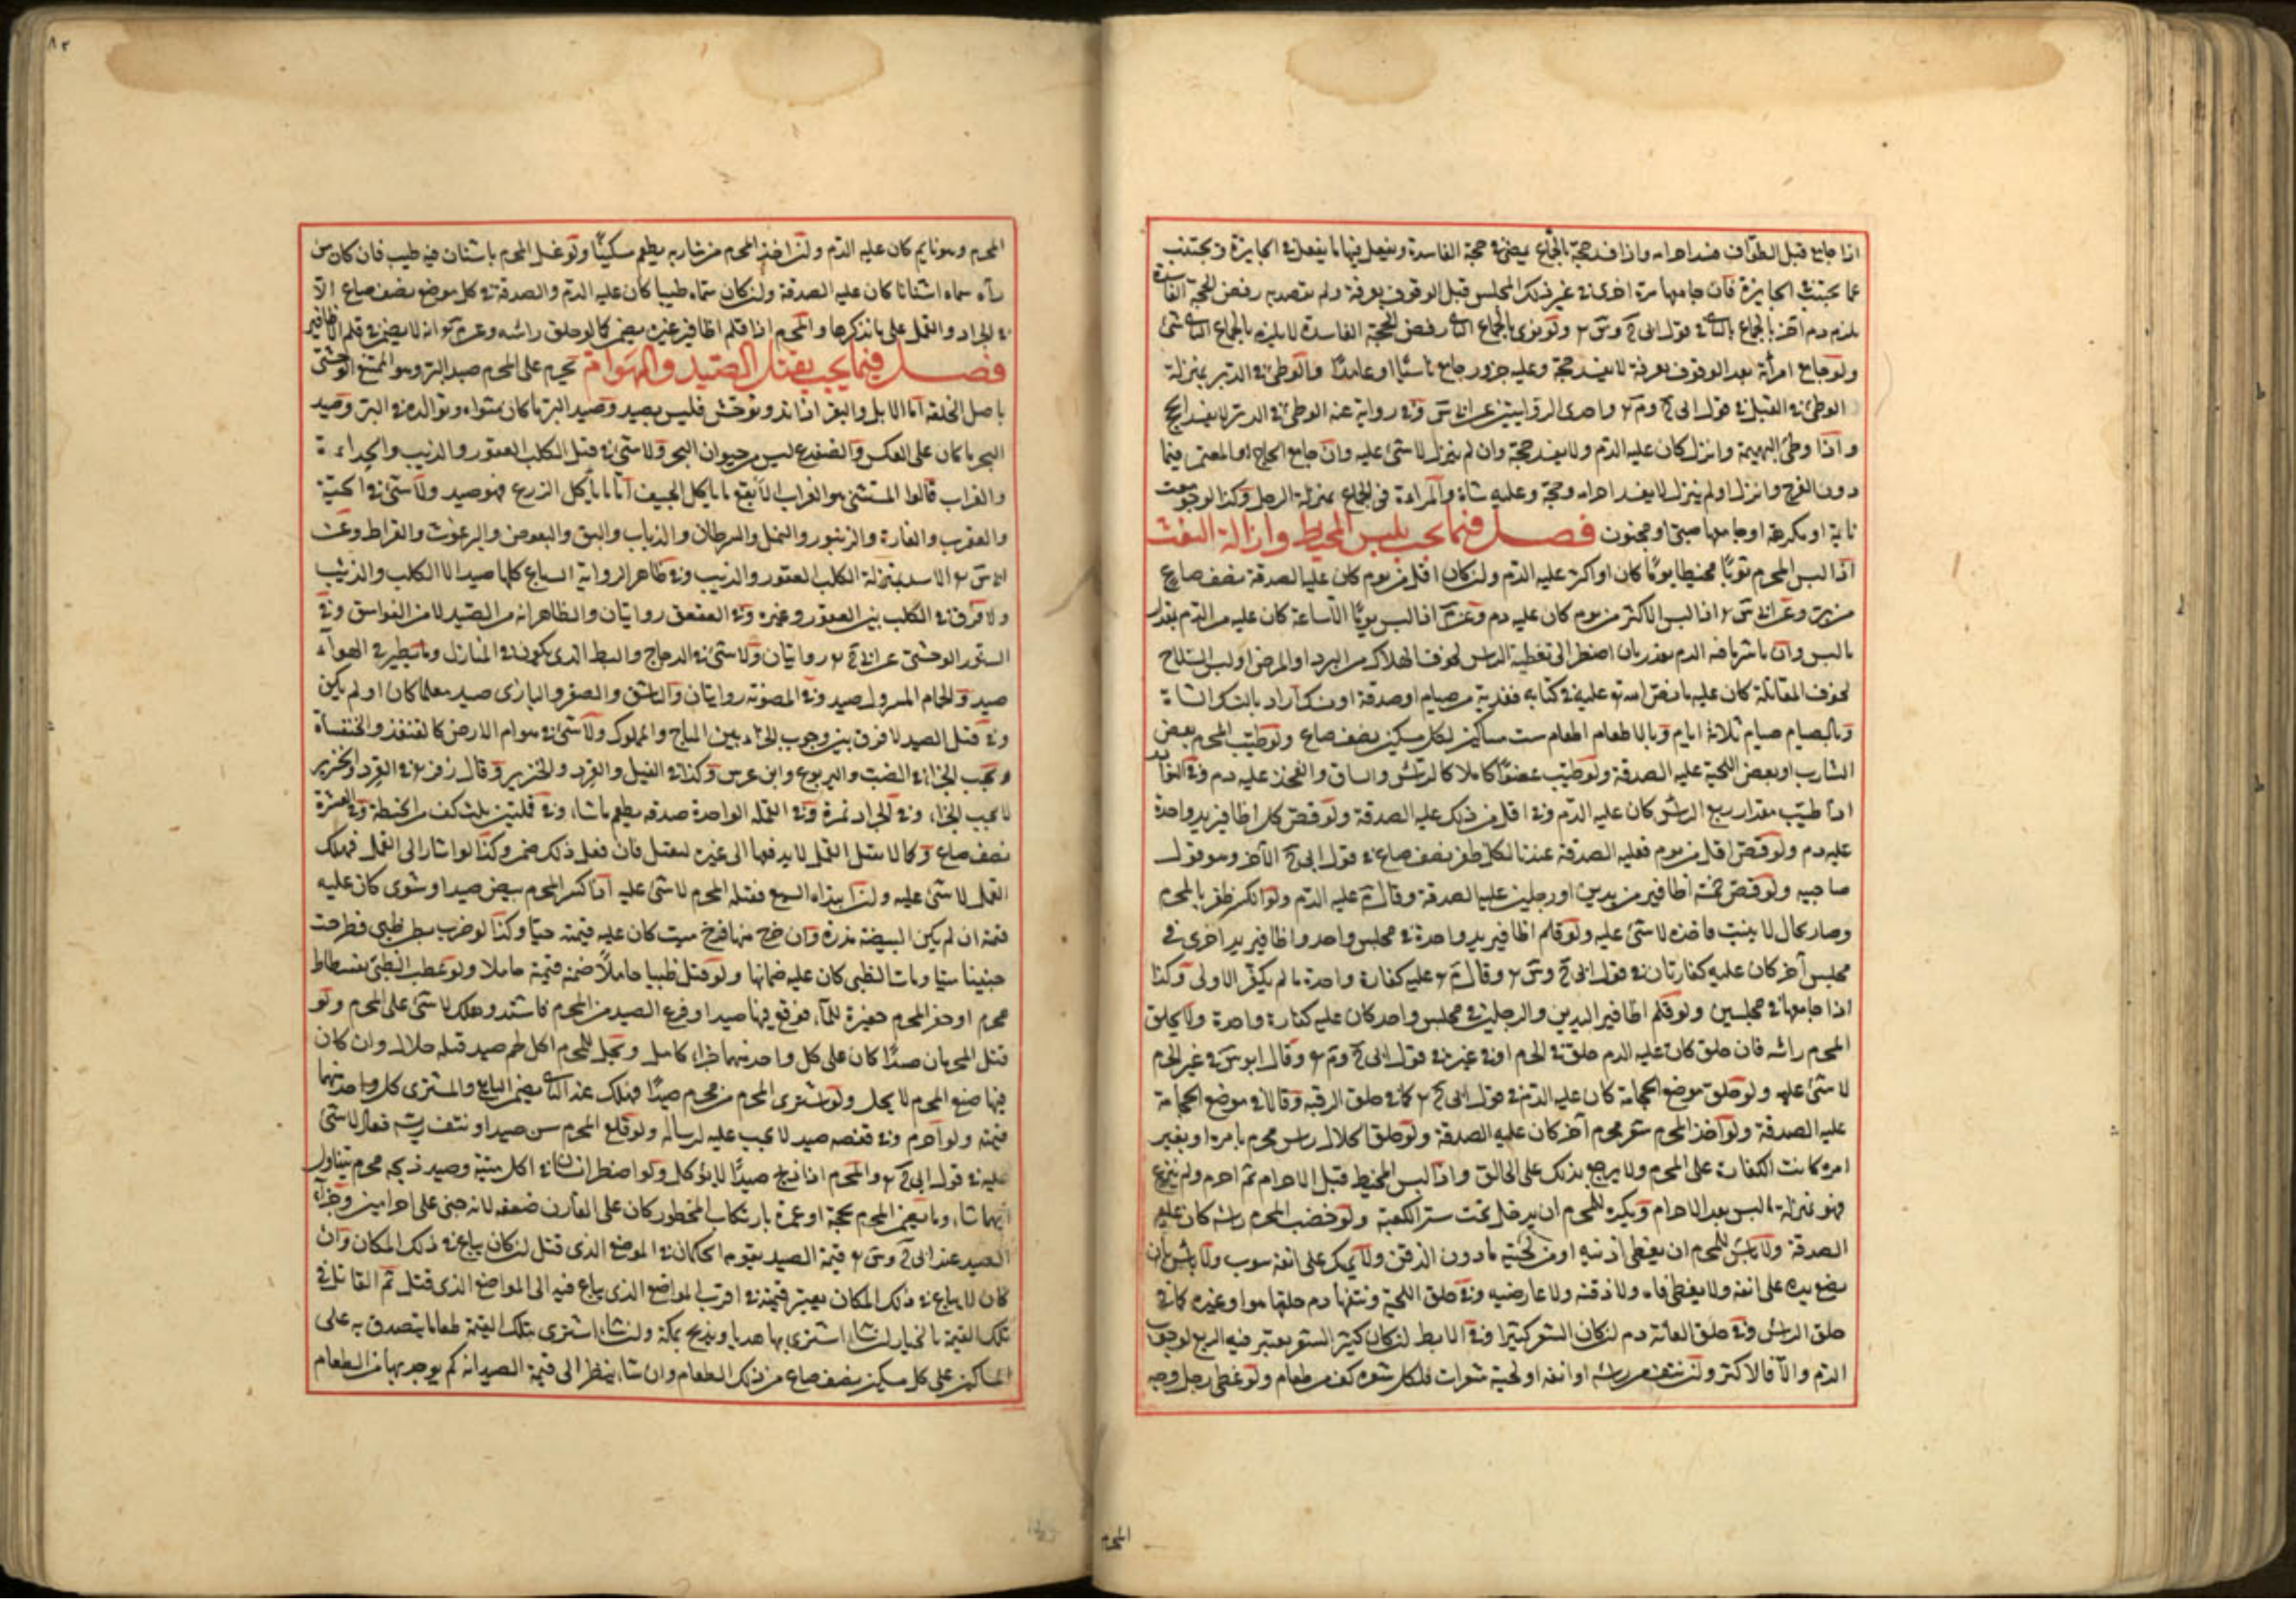 اذا جامع قبل الطواف فسد احرامه واذا فسد حجه بالجماع يمضى فى حجة الفاسدة ويفعل فيها ما يفعل فى الجايزة ويجتنب
عما يجتنب فى الجايزة فان جامعها مرة اخرى فى غير ذلك المجلس قبل الوقوف بعرفة ولم يقصد به رفض الحجة الفاسدة
يلزم دم اخر بالجماع الثانى فى قول ابى ح وس ولو نوى بالجماع الثانى رفض الحجة الفاسدة لا يلزم بالجماع الثانى شئ
ولو جامع امرأة بعد الوقوف بعرفة لا يفسد حجه وعليه جزور جامع ناسيًا او عامدًا والوطئ فى الدبر بمنزلة
الوطئ فى القبل فى قول ابى ح وم واحدى الروايتين عن ابى س وفى رواية عنه الوطئ فى الدبر لا يفسد الحج
واذا وطئ البهيمة وانزل كان عليه الدم ولا يفسد حجه وان لم ينزل لا شئ عليه وان جامع الحاج او المعتمر فيما
دون الفرج وانزل او لم ينزل لا يفسد احرامه وحجه وعليه شاة والمرأة فى الجماع بمنزلة الرجل وكذا لو جومعت
نايمة او مكرهة او جامعها صبى او مجنون فصل فيما يجب بلبس المخيط وازالة التفث
اذا لبس المحرم ثوبًا مخيطا يومًا كان او اكثر عليه الدم ولن كان اقل من يوم كان عليه الصدقة نصف صاع
من بر وعن ابى س اذا لبس الاكثر من يوم كان عليه دم وعن م اذا لبس يومًا الا ساعة كان عليه من الدم بقدر
ما لبس وان باشر ما فيه الدم بعذر بان اضطر الى تغطية الراس لخوف الهلاك من البرد او المرض او لبس السلاح
لخوف المقاتلة كان عليه ما نص الله تع عليه فى كتابه ففدية من صيام او صدقة او نسك اراد بالنسك الشاة
وبالصيام صيام ثلاثة ايام وبالاطعام اطعام ست مساكين لكل مسكين نصف صاع ولو طيب المحرم بعض
الشارب او بعض اللحية عليه الصدقة ولو طيب عضوًا كاملا كالراس والساق والفخذ عليه دم
اذا طيب مقدار ربع الراس كان عليه الدم وفى اقل من ذلك عليه الصدقة ولو قص كل اظافير يد واحدة
عليه دم ولو قص اقل من يوم فعليه الصدقة عندنا لكل ظفر نصف صاع فى قول ابى ح الآخر وهو قول
صاحبيه ولو قص خمسة اظافير من يدين او رجلين عليه الصدقة وقال م عليه الدم ولو انكسر ظفر المحرم
وصار بحال لا ينبت فاخذه لا شئ عليه ولو قلم اظافير يد واحدة فى مجلس واحد واظافير يد اخرى فى
مجلس آخر كان عليه كفارتان فى قول ابى ح وس وقال م عليه كفارة واحدة ما لم يكفر الاولى وكذا
اذا جامعها فى مجلسين ولو قلم اظافير اليدين والرجلين فى مجلس واحد كان عليه كفارة واحدة ولا يحلق
المحرم راسه فان حلق كان عليه الدم حلق فى الحرم او فى غيره فى قول ابى ح وم وقال ابو س فى غير الحرم
لا شئ عليه ولو حلق موضع الحجامة كان عليه الدم فى قول ابى ح كما فى حلق الرقبه وقالا فى موضع الحجامة
عليه الصدقة ولو اخذ المحرم شعر محرم آخر كان عليه الصدقة ولو حلق الحلال راس محرم بامره او بغير
امره كانت الكفارة على المحرم ولا يرجع بذلك على الحالق واذا لبس المخيط قبل الاحرام ثم احرم ولم ينزع
فهو بمنزلة اللبس بعد الاحرام ويكره للمحرم ان يدخل تحت ستر الكعبة ولو خضب المحرم راسه كان عليه
الصدقة ولا باس للمحرم ان يغطى اذنيه او من لحيته ما دون الذقن ولا يمسك على انفه بثوب ولا باس بان
يضع يده على انفه ولا يغطى فاه ولا ذقنه ولا عارضيه وفى حلق اللحية ونتفها دم حلقها هو او غيره كما فى
حلق الراس وفى حلق العانة دم لن كان الشعر كثيرا وفى الابط لن كان كثير الشعر يعتبر فيه الربع لوجوب
الدم والا فالاكثر ولن نتف من راسه او انفه او لحيته شعرات فلكل شعرة كف من طعام ولو غطى رجل وجه
المحرم
٨٢
المحرم وهو نايم كان عليه الدم ولن اخذ المحرم من شاربه يطعم مسكينًا ولو غسل المحرم باشنان فيه طيب فان كان من
رآه سماه اشنانا كان عليه الصدقة ولن كان سماه طيبا كان عليه الدم والصدقة فى كل موضع نصف صاع الا
فى الجراد والقمل على ما نذكرها والمحرم اذا قلم اظافير غيره يضمن كما لو حلق راسه وعن م انه لا يضمن فى قلم الاظافير
فصل فيما يجب بقتل الصيد والهوام يحرم على المحرم صيد البر وهو الممتنع الوحشى
باصل الخلقة اما الابل والبقر اذا ند وتوحش فليس بصيد وصيد البر ما كان مثواه وتوالده فى البر وصيد
البحر ما كان على العكس والضفدع ليس من حيوان البحر ولا شئ فى قتل الكلب العقور والذيب والحداءة
والغراب قالوا المستثنى هو الغراب الابقع ما ياكل الجيف اما ما يأكل الزرع فهو صيد ولا شئ فى الحية
والعقرب والفارة والزنبور والنمل والسرطان والذباب والبق والبعوض والبرغوث والقراط وعن
ابى س الاسد بمنزلة الكلب العقور والذيب وفى ظاهر الرواية السباع كلها صيد الا الكلب والذئب
ولا فرق فى الكلب بين العقور وغيره وفى العقعق روايتان والظاهر انه من الصيد لا من الفواسق وفى
السنور الوحشى عن ابى ح روايتان ولا شئ فى الدجاج والبط الذى يكون فى المنازل وما يطير فى الهواء
صيد والحمام المسرول صيد وفى المصوتة روايتان والباشق والصقر والبازى صيد معلما كان او لم يكن
وفى قتل الصيد لا فرق بين وجوب الجزاء بين المباح والمملوك ولا شئ فى هوام الارض كالقنفذ والخنفساة
ويجب الجزاء فى الضب واليربوع وابن عرس وكذا فى الفيل والقرد والخنزير وقال زفر فى القرد والخنزير
لا يجب الجزاء وفى الجراد تمرة وفى القملة الواحدة صدقة يطعم ما شاء وفى قملتين بثلث كف من الحنطة وفى العشرة
نصف صاع وكما لا يقتل القمل لا يدفعها الى غيره ليقتل فان فعل ذلك ضمن وكذا لو اشار الى القمل فهلك
القمل لا شئ عليه ولن ابتدأه السبع فقتله المحرم لا شئ عليه اذا كسر المحرم بيض صيد او شوى كان عليه
قيمته ان لم يكن البيضة مذرة وان خرج منها فرخ ميت كان عليه قيمته حيًا وكذا لو ضرب بطن ظبى فطرحت
جنينا ميتا ومات الظبى كان عليه ضمانها ولو قتل ظبيا حاملًا ضمن قيمته حاملا ولو عطب الظبى بفسطاط
محرم او حفر المحرم حفيرة للماء فوقع فيها صيد او فزع الصيد من المحرم فاشتد وهلك لا شئ على المحرم ولو
قتل المحرمان صيدًا كان على كل واحد منهما جزاء كامل ويحل للمحرم اكل لحم صيد قتله حلال وان كان
فيها صنع المحرم لا يحل ولو اشترى المحرم من محرم صيدًا فهلك عند الثانى يضمن البايع والمشترى كل واحد منهما
قيمته ولو احرم وفى قفصه صيد لا يجب عليه ارساله ولو قلع المحرم سن صيد او نتف ريشه فعاد لا شئ
عليه فى قول ابى ح والمحرم اذا ذبح صيدًا لا يؤكل ولو اضطر انسان الى اكل ميتة وصيد ذبحه محرم يتناول
ايهما شاء وما يضمن المحرم بحجة او عمرة بارتكاب المحظور كان على القارن ضعفه لانه جنى على احرامين وجزاء
الصيد عند ابى ح وس قيمة الصيد يقوم الحكمان فى الموضع الذى قتل لن كان يباع فى ذلك المكان وان
كان لا يباع فى ذلك المكان يعتبر قيمته فى اقرب المواضع الذى يباع فيه الى المواضع الذى قتل ثم القاتل فى
تلك القيمة بالخيار لن شاء اشترى بها هديا ويذبح بمكة ولن شاء اشترى بتلك القيمة طعاما يتصدق به على
المساكين على كل مسكين نصف صاع من ذلك الطعام وان شاء ينظر الى قيمة الصيد انه كم يوجد بها من الطعام